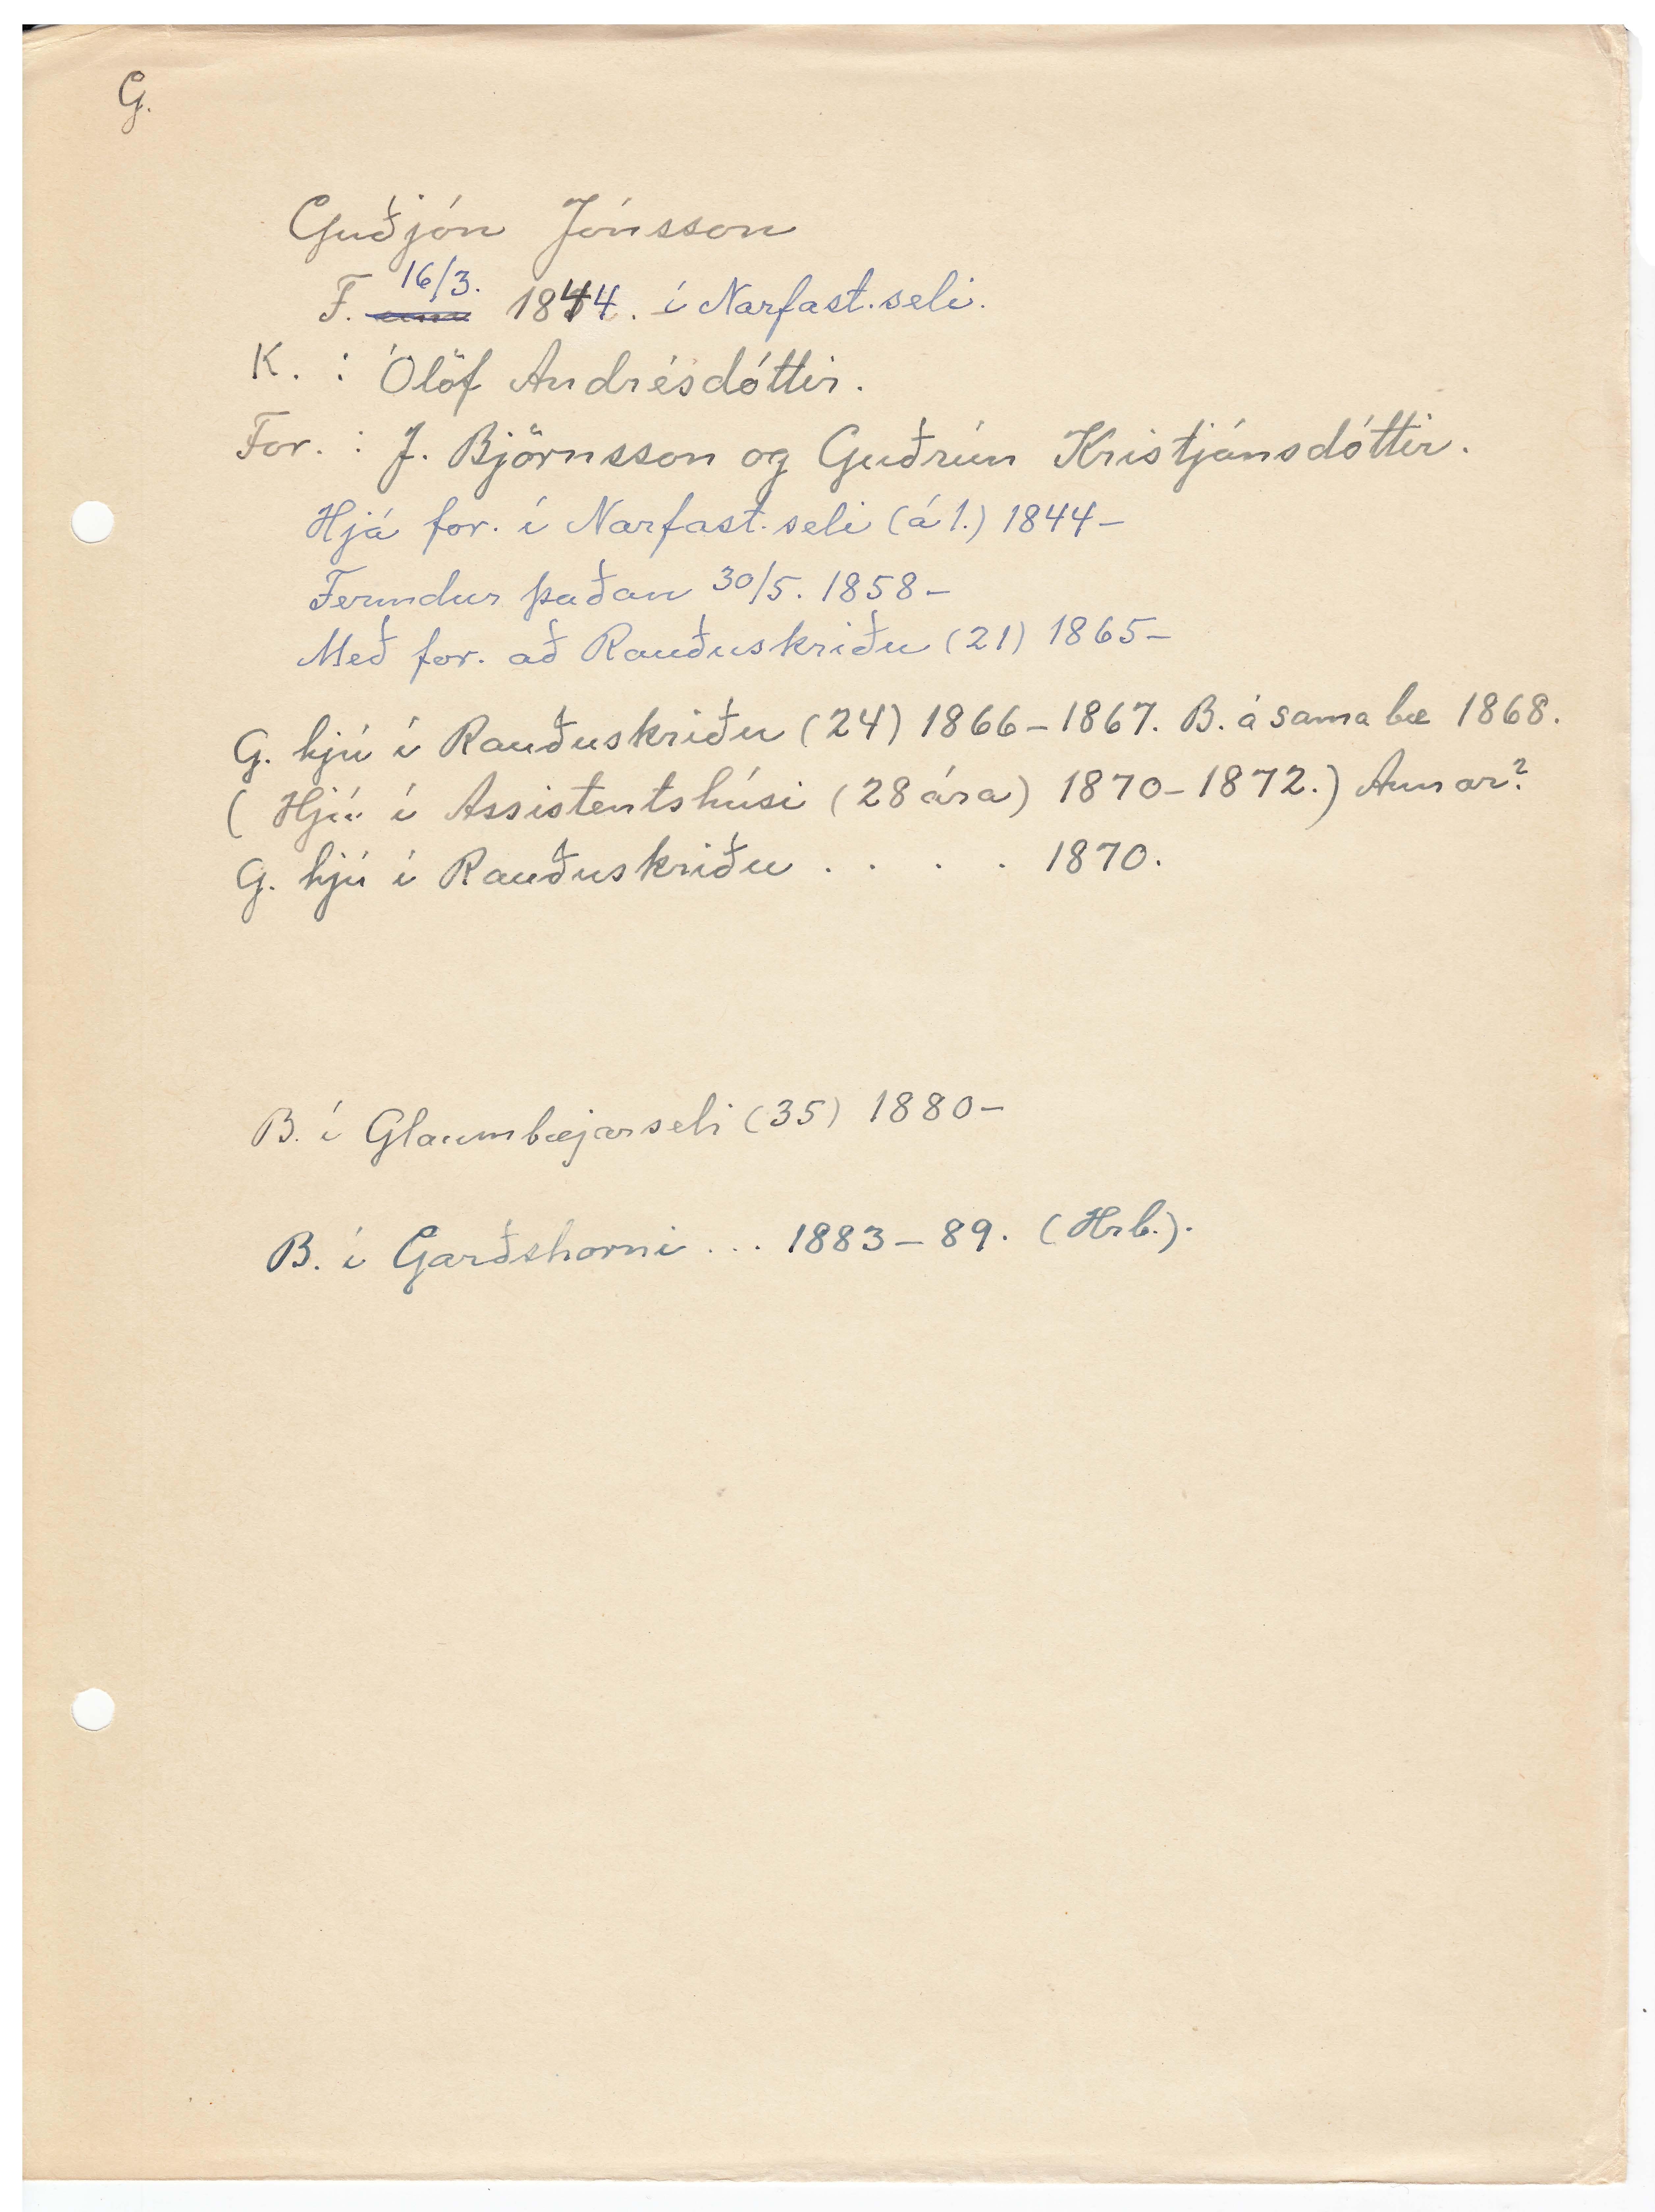 G.
Guðjón Jónsson
F. 16/3. 1844. í Narfast.seli.
K. : Ólöf Andrésdóttir.
For. : J. Björnsson og Guðrún Kristjánsdóttir.
Hjá for. í Narfast.seli (á 1.) 1844-
Fermdur þaðan 30/5. 1858-
Með for. að Rauðuskriðu (21) 1865-
G. hjú í Rauðuskriðu (24) 1866-1867. B. á sama bæ 1868.
( Hjú í Assistentshúsi (28 ára) 1870-1872.) Annar?
G. hjú í Rauðuskriðu . . . . 1870.
B. í Glaumbæjarseli (35) 1880-
B. í Garðshorni ... 1883-89. (Hrb.).